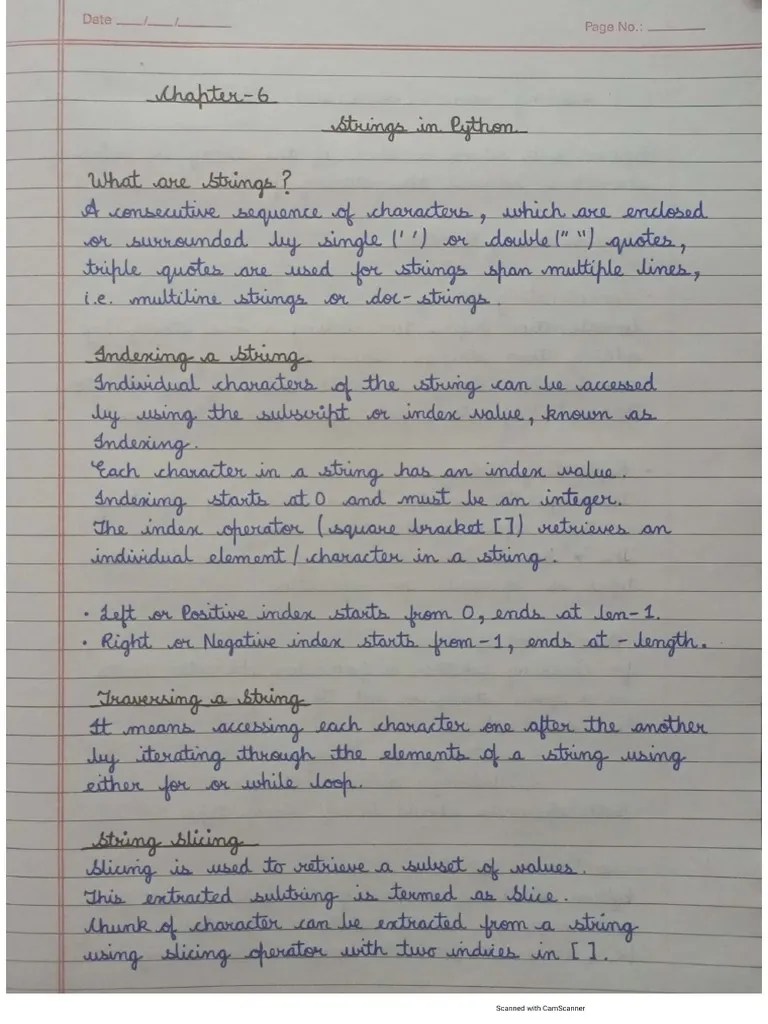 Date ___/___/______
Page No.: ______
Chapter-6
Strings in Python
What are strings?
A consecutive sequence of characters, which are enclosed
or surrounded by single (' ') or double (" ") quotes,
triple quotes are used for strings span multiple lines,
i.e. multiline strings or doc-strings.
Indexing a string
Individual characters of the string can be accessed
by using the subscript or index value, known as
Indexing.
Each character in a string has an index value.
Indexing starts at 0 and must be an integer.
The index operator (square bracket []) retrieves an
individual element / character in a string.
• Left or Positive index starts from 0, ends at len-1.
• Right or Negative index starts from -1, ends at - length.
Traversing a string
It means accessing each character one after the another
by iterating through the elements of a string using
either for or while loop.
String Slicing
Slicing is used to retrieve a subset of values.
This extracted subtring is termed as Slice.
Chunk of character can be extracted from a string
using slicing operator with two indices in [ ].
Scanned with CamScanner